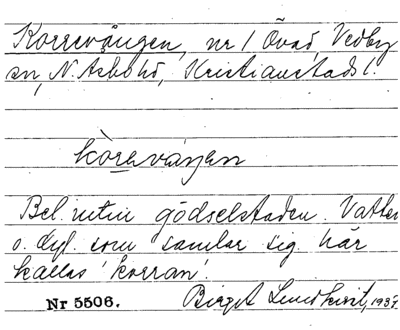 Korrevången, nr 1 Övad, Vedby
sn, N. Åsbo hd, Kristianstads l.
kòrevàŋen
Bel. intill gödselstaden. Vatten
o. dyl. som samlar sig här
kallas 'korran'.
Nr 5506. Birgit Lundkvist, 1937